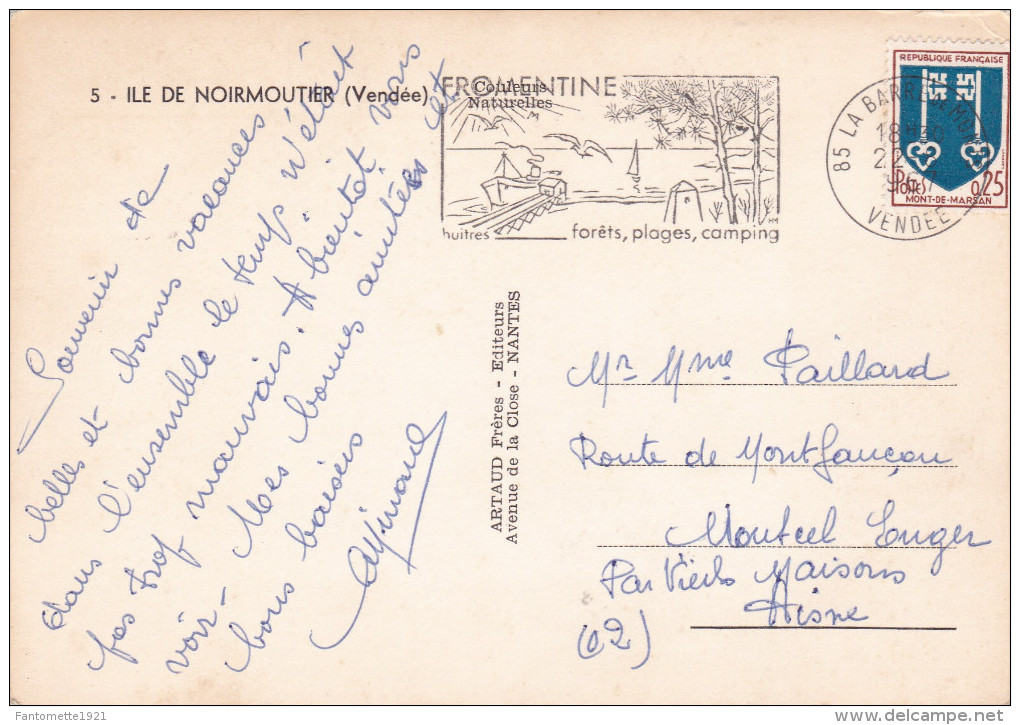 5 - ILE DE NOIRMOUTIER (Vendée)
Couleurs
Naturelles
FROMENTINE
huîtres forêts, plages, camping
85 LA BARRE DE MONTS
18H30
22
1967
VENDEE
REPUBLIQUE FRANÇAISE
Postes 0,25
MONT-DE-MARSAN
Souvenir de
belles et bonnes vacances
dans l'ensemble le temps n'était
pas trop mauvais. A bientôt vous
voir - Mes bonnes amitiés et
bons baisers
ARTAUD Frères - Editeurs
Avenue de la Close - NANTES
Mr Mme Paillard
Route de Montfaucon
Par Viels Maisons
Aisne
(02)
Fantomette1921